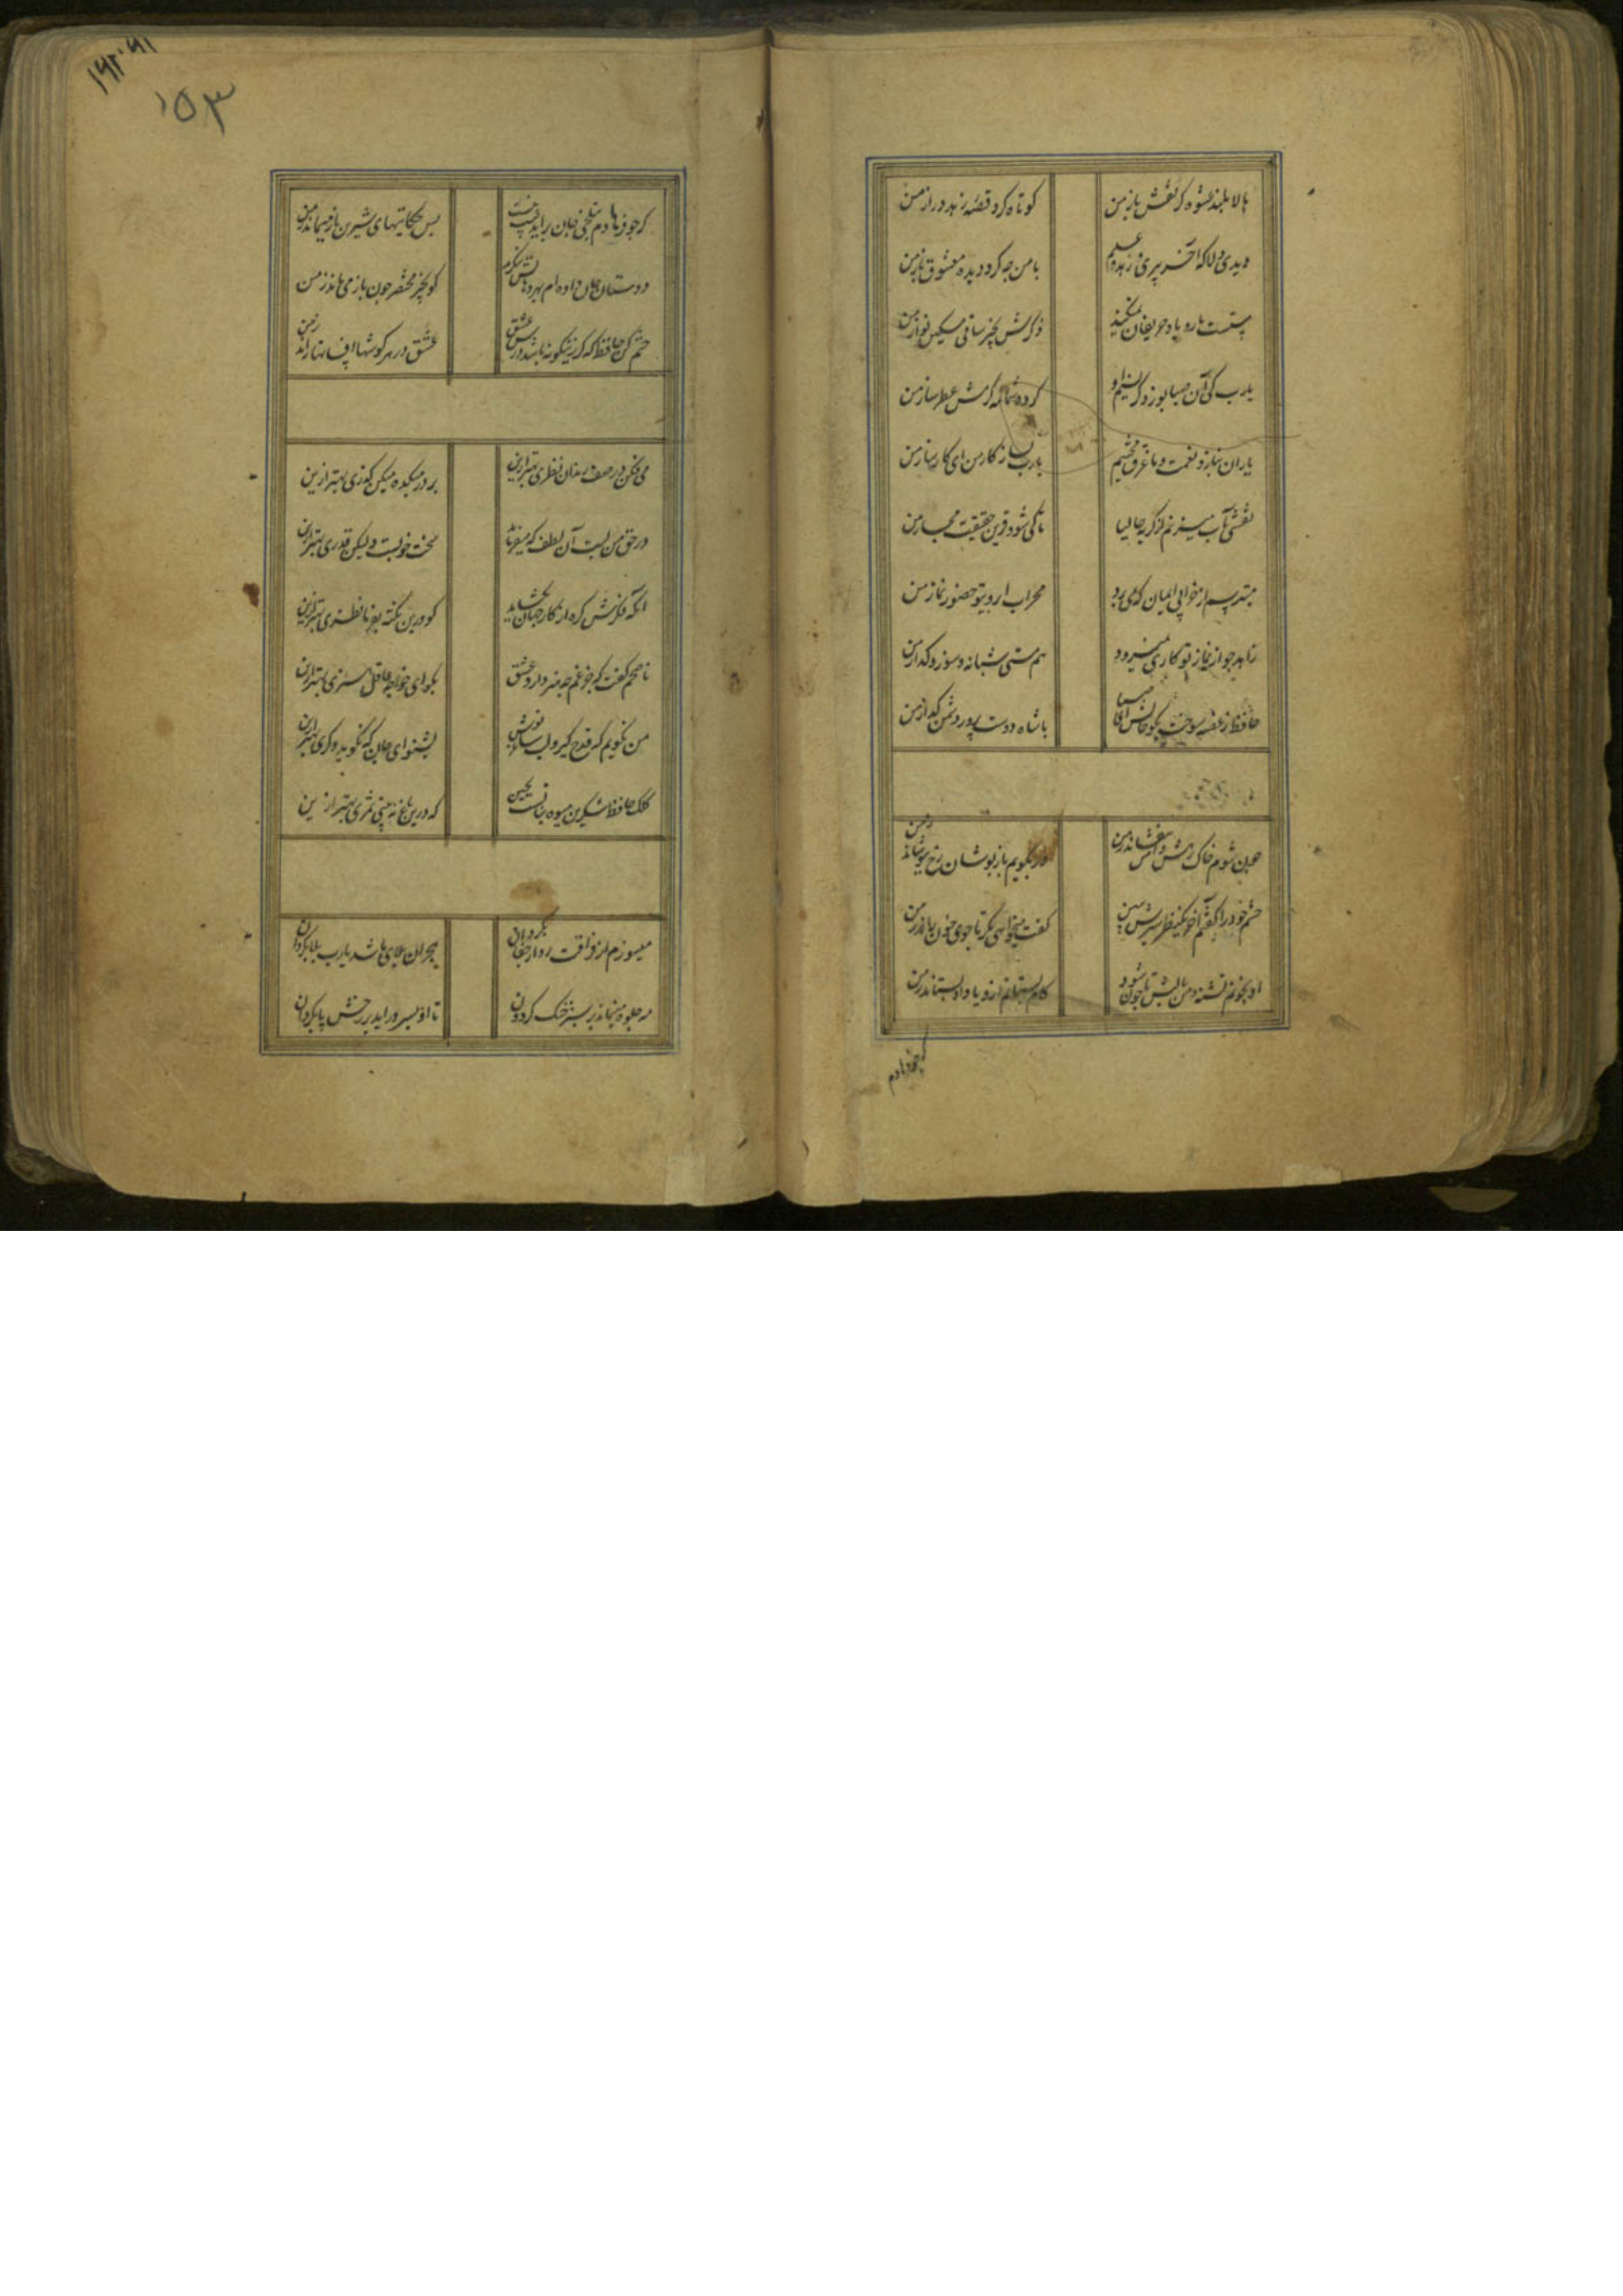 بالا بلند عشوه گر نقش باز من
کوتاه کرد قصه زهد دراز من
دیدی دلا که آخر پیری و زهد و علم
با من چه کرد دیده معشوق باز من
مستست یار و یاد حریفان نمیکند
ذکرش بخیر ساقی مسکین نواز من
یارب کی آن صبا بوزد کز نسیم او
گردد شمامه کرمش عطر ساز من
یاران بناز و نعمت و ما غرق محنتیم
یارب بساز کار من ای کارساز من
نقشی بر آب میزنم از گریه حالیا
تا کی شود قرین حقیقت مجاز من
میترسم از خرابی ایمان که می برد
محراب ابروی تو حضور نماز من
زاهد چو از نماز تو کاری نمیرود
هم مستی شبانه و سوز و گداز من
حافظ ز غصه سوخت بگو حالش ای صبا
با شاه دوست پرور دشمن گداز من
چون شوم خاک رهش دامن بیفشاند ز من
ور بگویم باز پوشان رخ بپوشاند ز من
چشم خود را گفتم آخر یک نظر سیرش ببین
گفت میخواهی مگر تا جوی خون راند ز من
او بخونم تشنه و من بر لبش تا چون شود
کام بستانم ازو یا داد بستاند ز من
گر چو فرهادم
۱۵۳
گر چو فرهادم بتلخی جان براید حیف نیست
بس حکایتهای شیرین باز میماند ز من
دوستان جان داده ام بهر دهانش بنگرید
کو بچیز مختصر چون باز می ماند ز من
ختم کن حافظ که گر زینگونه باشد درس عشق
عشق در هر گوشها افسانها راند ز من
می فکن در صف رندان نظری بهتر ازین
بر در میکده میکن گذری بهتر ازین
در حق من لبت آن لطف که میفرماید
سخت خوبست ولیکن قدری بهتر ازین
آنکه فکرش گره از کار جهان بگشاید
گو درین نکته بفرما نظری بهتر ازین
ناصحم گفت که جز غم چه هنر دارد عشق
بگو ای خواجه عاقل هنری بهتر ازین
من نگویم که قدح گیر و لب ساقی نوش
بشنو ای جان که نگوید دگری بهتر ازین
کلک حافظ شکرین میوه نباتست بچین
که درین باغ نه بینی ثمری بهتر ازین
میسوزم از فراقت رو از جفا بگردان
هجران بلای ما شد یارب بلا بگردان
مه جلوه مینماید بر سبز خنگ گردون
تا او بسر دراید بر رخش پا بگردان